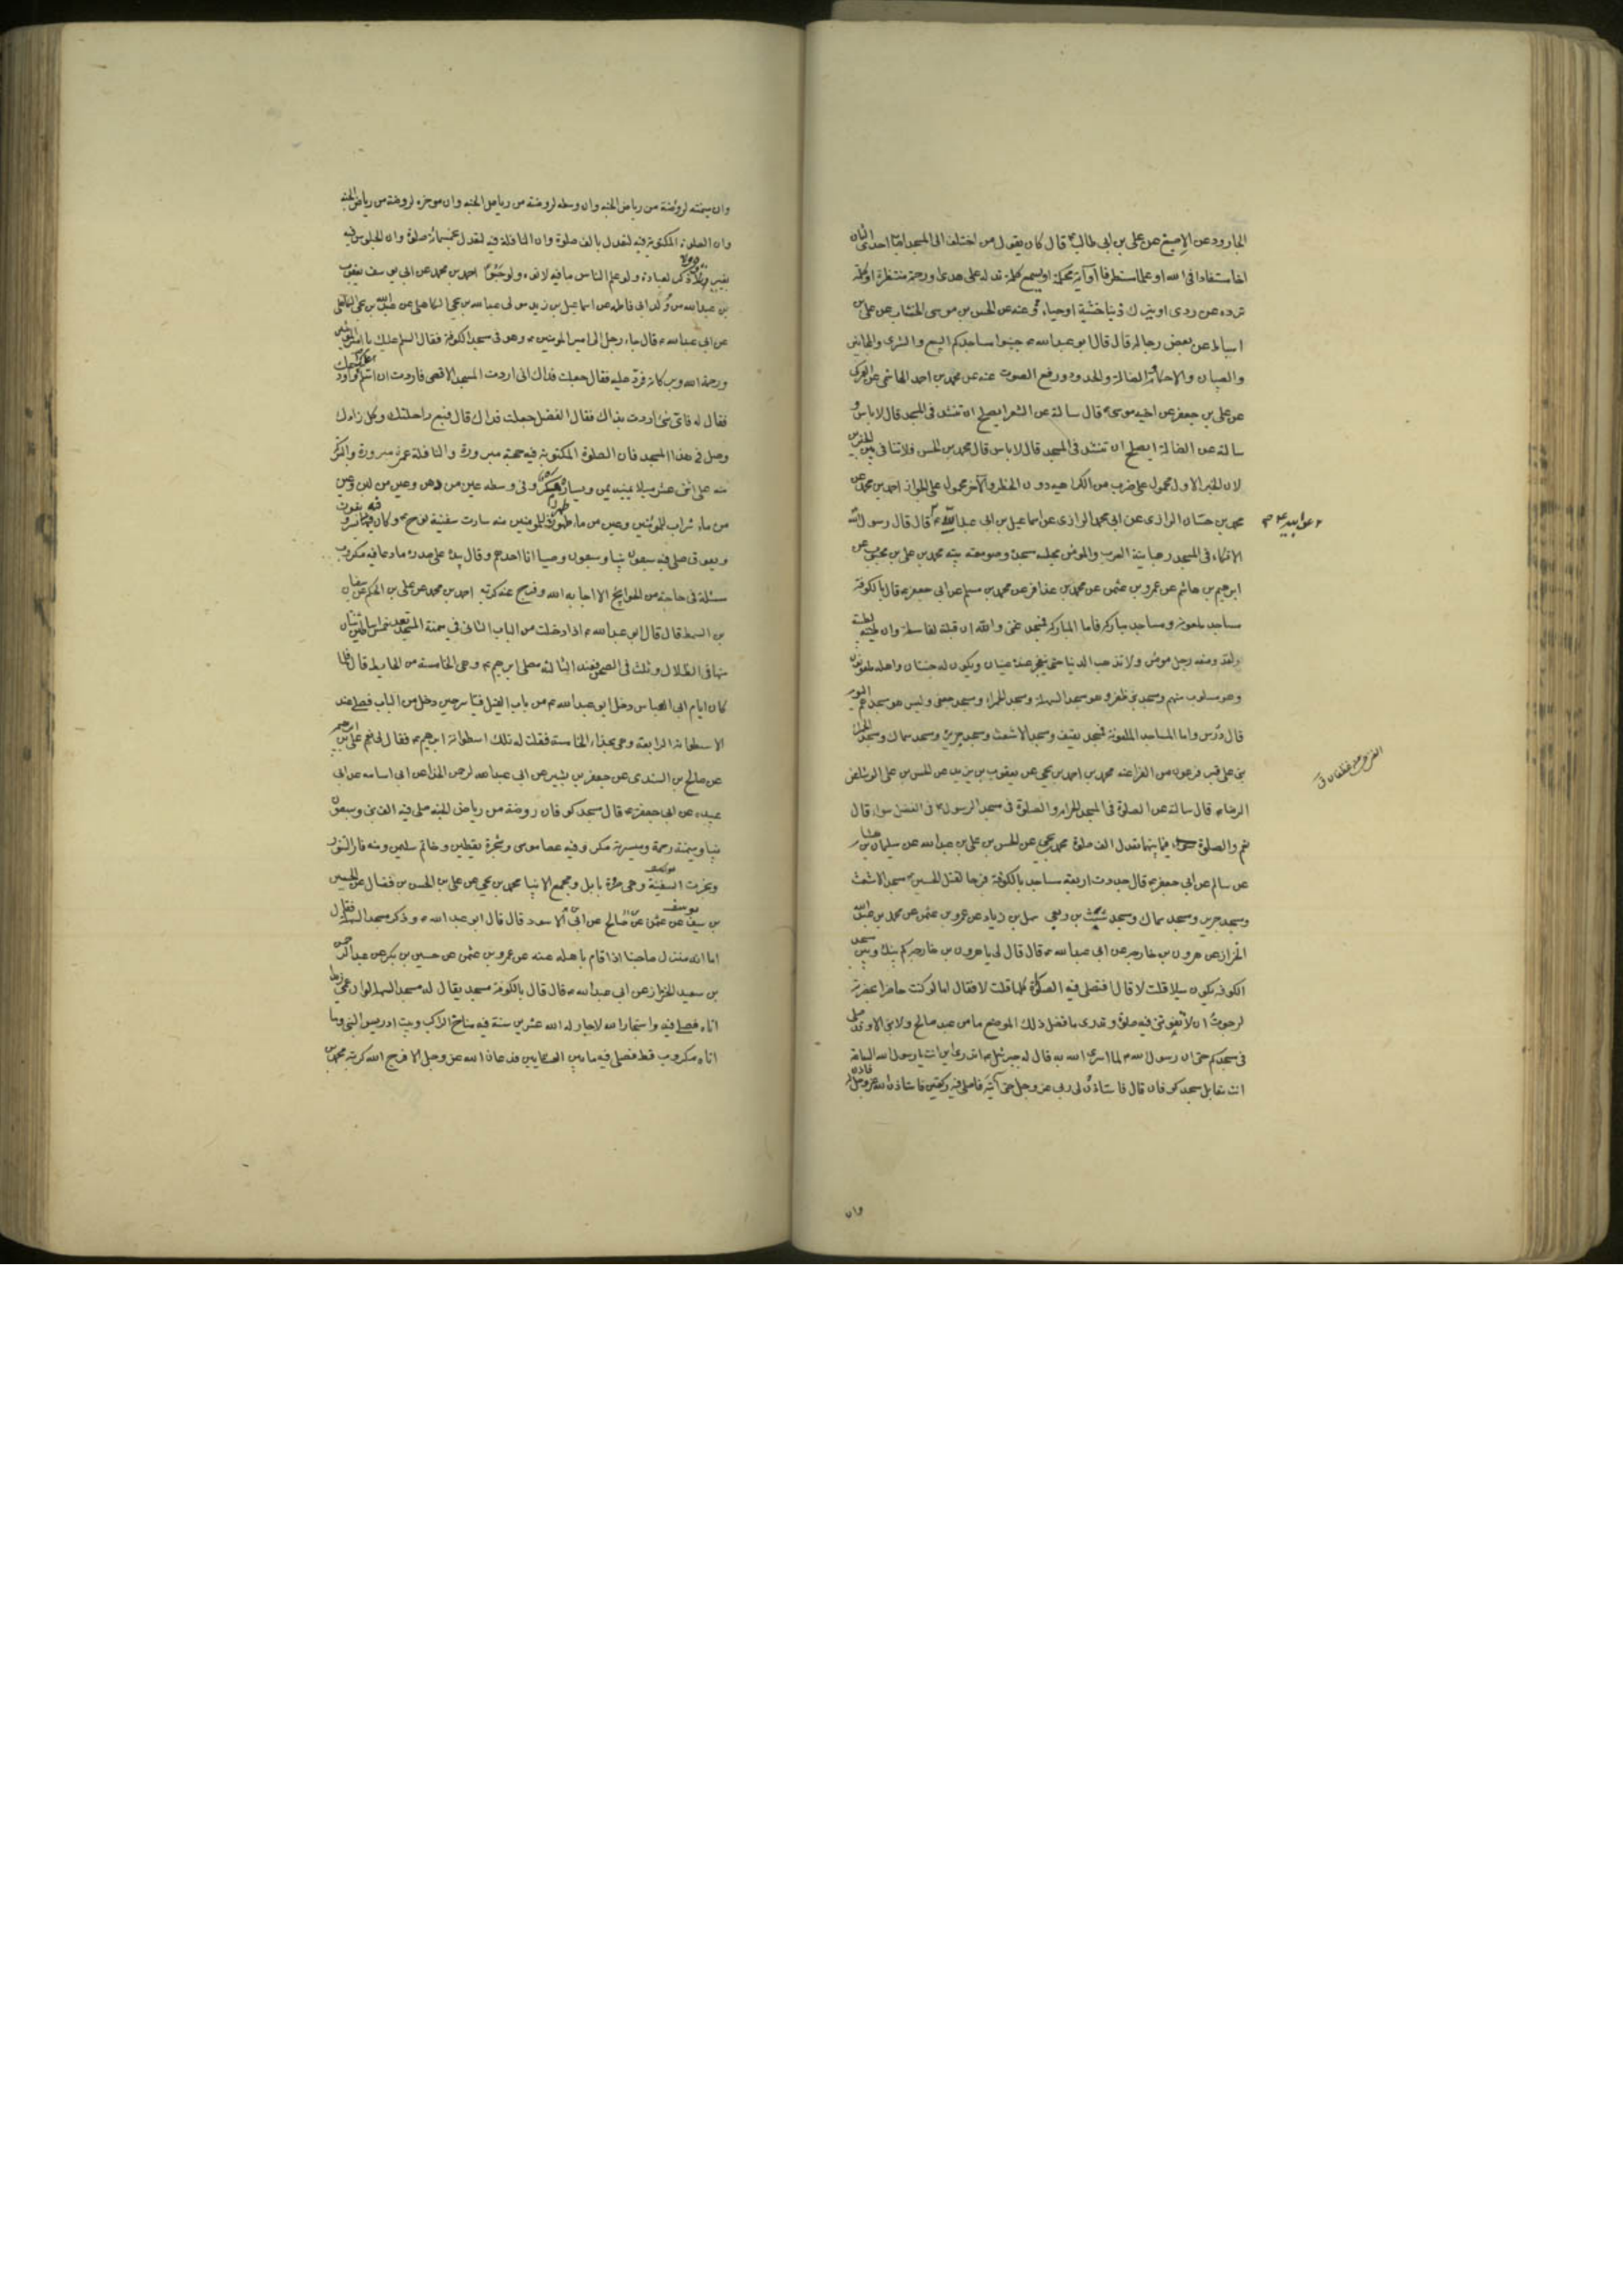 الجارود عن الاصبغ عن على بن ابى طالب ع قال كان يقول من اختلف الى المسجد اصاب احدى الثمان
اخا مستفادا فى الله او علما مستطرفا او آية محكمة او يسمع كلمة تدله على هدى او رحمة منتظرة او كلمة
ترده عن ردى او يترك ذنبا خشية او حياء وعنه عن الحسن بن موسى الخشاب عن على بن
اسباط عن بعض رجاله قال قال ابو عبد الله ع جنبوا مساجدكم البيع والشرى والمجانين
والصبيان والاحكام والضالة والحدود ورفع الصوت عنه عن محمد بن احمد الهاشمى عن العمركى
عن على بن جعفر عن اخيه موسى ع قال سالته عن الشعر ايصلح ان تنشد فى المسجد قال لا باس و
سالته عن الضالة ايصلح ان تنشد فى المسجد قال لا باس قال محمد بن الحسن فلا تنافى بين الخبرين
لان الخبر الاول محمول على ضرب من الكراهيه دون الحظر والآخر محمول على الجواز احمد بن محمد عن
محمد بن حسان الرازى عن ابى محمد الرازى عن اسماعيل بن ابى عبد الله ع قال قال رسول الله
الاتكاء فى المسجد رهبانية العرب والمومن مجلسه مسجده وصومعته بيته محمد بن على بن محبوب عن
ابرهيم بن هاشم عن عمرو بن عثمن عن محمد بن عذافر عن محمد بن مسلم عن ابى جعفر ع قال بالكوفة
مساجد ملعونه ومساجد مباركه فاما المباركه فمسجد غنى والله ان قبلته لقاسطة وان طينته لطيبة
ولقد وضعه رجل مومن ولا تذهب الدنيا حتى ينفجر عنده عينان ويكون له جنتان واهله ملعونون
وهو مسلوب منهم ومسجد بنى ظفر وهو مسجد السهلة ومسجد الحمراء ومسجد جعفى وليس هو مسجدهم اليوم
قال درس واما المساجد الملعونة فمسجد ثقيف ومسجد الاشعث ومسجد جرير ومسجد سماك ومسجد الحمراء
بنى على قبر فرعون من الفراعنه محمد بن احمد بن يحيى عن يعقوب بن يزيد عن الحسن بن على الوشا عن
الرضا ع قال سالته عن الصلوة فى المسجد الحرام والصلوة فى مسجد الرسول ع فى الفضل سواء قال
نعم والصلوة فيما بينهما تعدل الف صلوة محمد بن يحيى عن الحسن بن على بن عبد الله عن سليمان بن هشام
عن سالم عن ابى جعفر ع قال جددت اربعة مساجد بالكوفة فرحا لقتل الحسين ع مسجد الاشعث
ومسجد جرير ومسجد سماك ومسجد شبث بن ربعى سهل بن زياد عن عمرو بن عثمن عن محمد بن عبد الله
الخزاز عن هرون بن خارجه عن ابى عبد الله ع قال قال لى يا هرون بن خارجه كم بينك وبين مسجد
الكوفه يكون ميلا قلت لا قال افتصلى فيه الصلوة كلها قلت لا فقال اما لو كنت حاضرا بحضرته
لرجوت ان لا تفوتنى فيه صلوة وتدرى ما فضل ذلك الموضع ما من عبد صالح ولا نبى الا وقد صلى
فى مسجدكم حتى ان رسول الله ص لما اسرى الله به قال له جبرئيل ع اتدرى اين انت يا رسول الله الساعة
انت مقابل مسجد كوفان قال فاستاذن لى ربى عز وجل حتى آتيه فاصلى فيه ركعتين فاستاذن الله عز وجل فاذن له
وان
وان ميمنته لروضة من رياض الجنه وان وسطه لروضة من رياض الجنه وان موخره لروضة من رياض الجنه
وان الصلوة المكتوبة فيه لتعدل بالف صلوة وان النافلة فيه لتعدل خمسمائة صلوة وان الجلوس فيه
بغير تلاوة ولا ذكر لعبادة ولو علم الناس ما فيه لاتوه ولو حبوا احمد بن محمد عن ابى يوسف يعقوب
بن عبد الله من ولد ابى فاطمه عن اسماعيل بن زيد مولى عبد الله بن يحيى الكاهلى عن عبد الله بن يحيى الكاهلى
عن ابى عبد الله ع قال جاء رجل الى امير المومنين ع وهو فى مسجد الكوفة فقال السلم عليك يا امير المومنين
ورحمة الله وبركاته فرد عليه فقال جعلت فداك انى اردت المسجد الاقصى فاردت ان اسلم عليك واودعك
فقال له فاى شى اردت بذاك فقال الفضل جعلت فداك قال فبع راحلتك وكل زادك
وصل فى هذا المسجد فان الصلوة المكتوبة فيه حجة مبرورة والنافلة عمرة مبرورة والبركة
منه على اثنى عشر ميلا يمينه يمن ويساره مكر وفى وسطه عين من دهن وعين من لبن وعين
من ماء شراب للمومنين وعين من ماء طهور للمومنين منه سارت سفينة نوح ع وكان فيه نسر و يغوث
ويعوق صلى فيه سبعون نبيا وسبعون وصيا انا احدهم وقال بيده على صدره ما دعا فيه مكروب
بمسئلة فى حاجة من الحوايج الا اجابه الله وفرج عنه كربته احمد بن محمد عن على بن الحكم عن سفيان
بن السمط قال قال ابو عبد الله ع اذا دخلت من الباب الثانى فى ميمنة المسجد فعد خمس اساطين ثنتان
منها فى الظلال وثلث فى الصحن فعند الثالثة مصلى ابرهيم ع وهى الخامسة من الحايط قال فلما
كان ايام ابى العباس دخل ابو عبد الله ع من باب الفيل فتياسر حين دخل من الباب فصلى عند
الاسطوانة الرابعة وهى بحذاء الخامسة فقلت له تلك اسطوانة ابرهيم ع فقال لى نعم على بن ابرهيم
عن صالح بن السندى عن جعفر بن بشير عن ابى عبد الرحمن الحذا عن ابى اسامه عن ابى
عبيده عن ابى جعفر ع قال مسجد كوفان روضة من رياض الجنة صلى فيه الف نبى وسبعون
نبيا وميمنة رحمة وميسرته مكر وفيه عصا موسى وشجرة يقطين وخاتم سليمن ومنه فار التنور
ونجرت السفينة وهى صرة بابل ومجمع الانبيا محمد بن يحيى عن على بن الحسن بن فضال عن الحسين
بن سيف عن عثمن عن صالح عن ابى الاسود قال قال ابو عبد الله ع وذكر مسجد السهلة فقال
اما انه منزل صاحبنا اذا قام باهله عنه عن عمرو بن عثمن عن حسين بن بكر عن عبد الرحمن
بن سعيد الخزاز عن ابى عبد الله ع قال قال بالكوفة مسجد يقال له مسجد السهله لو ان عمى زيدا
اتاه فصلى فيه واستجار الله لاجار له الله عشرين سنة فيه مناخ الراكب وبيت ادريس النبى وما
اتاه مكروب قط فصلى فيه ما بين العشايين فدعا الله عز وجل الا فرج الله كربته محمد بن